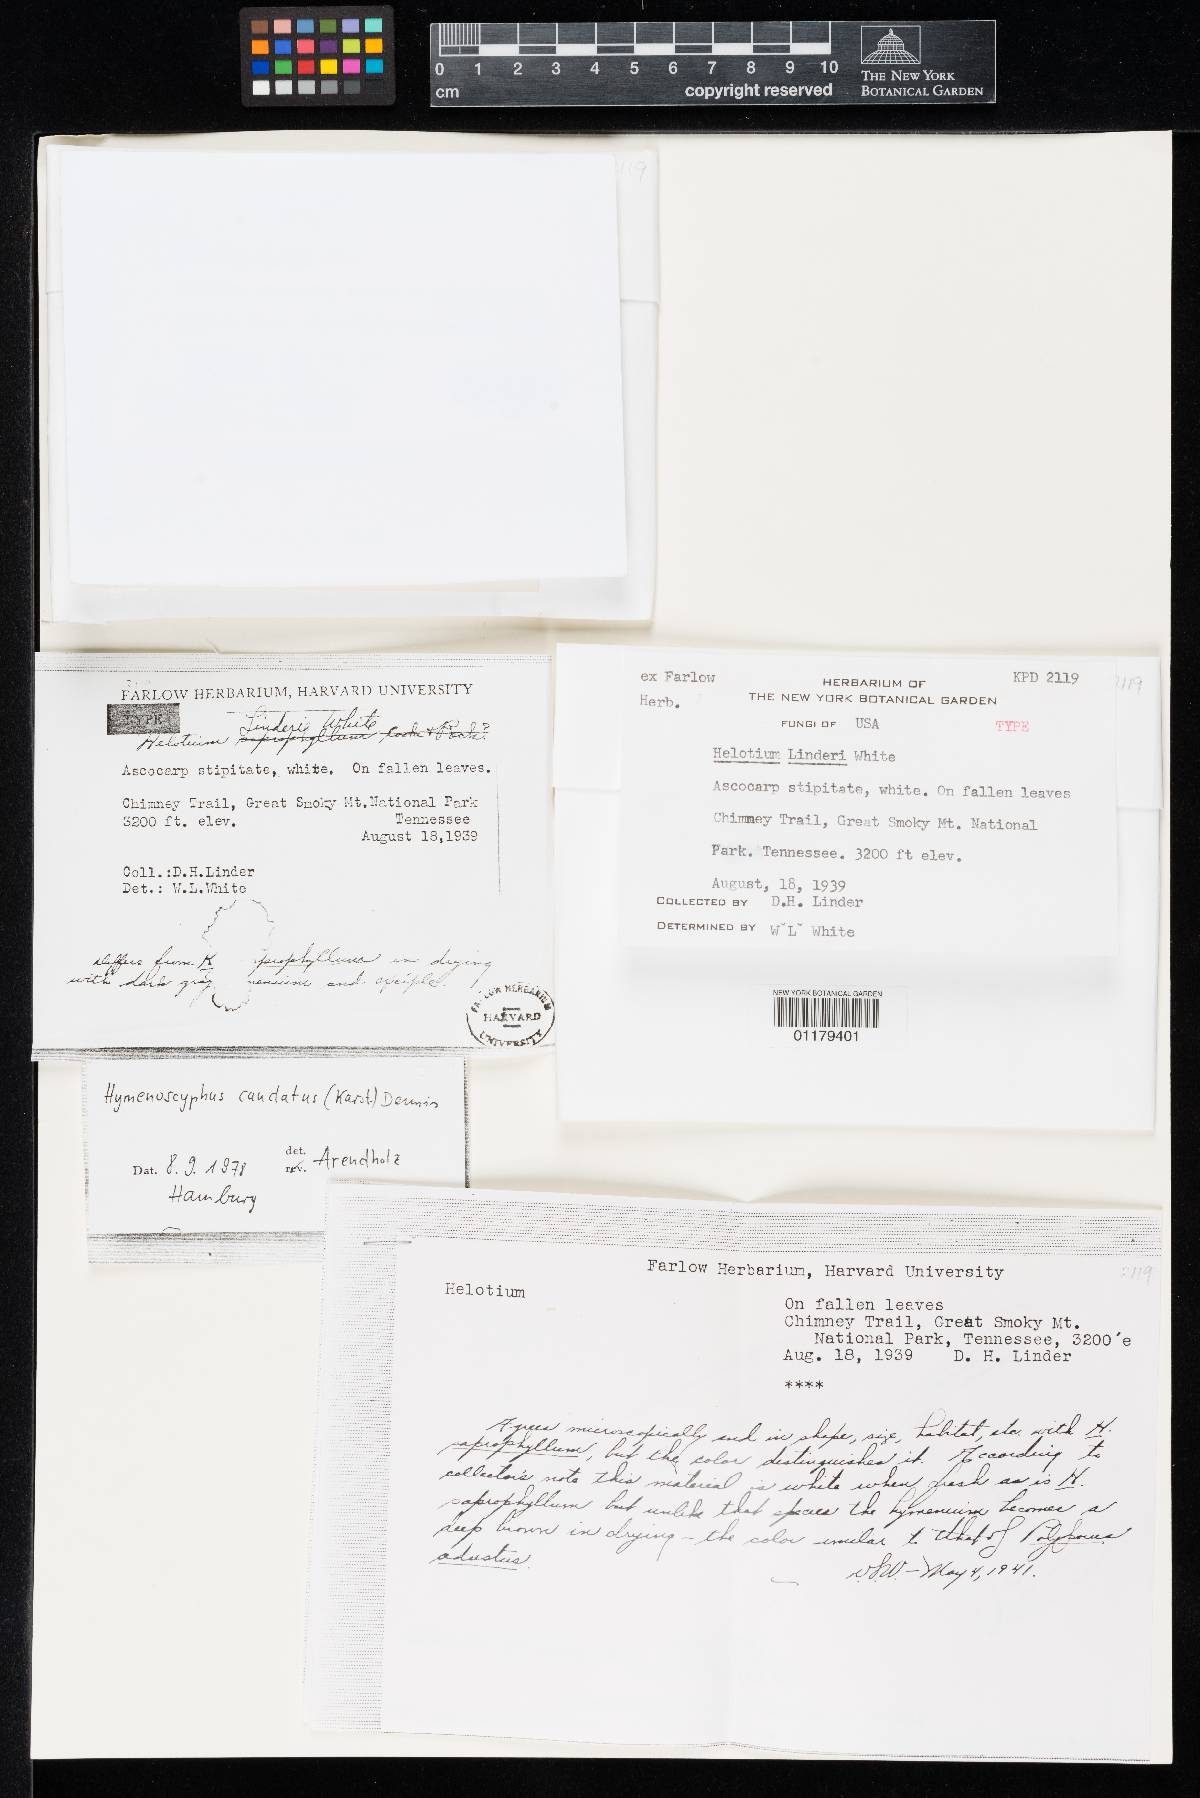 0 1 2 3 4 5 6 7 8 9 10
cm
copyright reserved
THE NEW YORK
BOTANICAL GARDEN
FARLOW HERBARIUM, HARVARD UNIVERSITY
TYPE
Linderi White
Helotium saprophyllum Cooke & Peck?
Ascocarp stipitate, white. On fallen leaves.
Chimney Trail, Great Smoky Mt. National Park
3200 ft. elev. Tennessee
August 18,1939
Coll.:D.H.Linder
Det.: W.L.White
differs from H prophyllum in drying
with dark gray menium and
FARLOW HERBARIUM
HARVARD
UNIVERSITY
ex Farlow
Herb.
HERBARIUM OF
THE NEW YORK BOTANICAL GARDEN
KPD 2119
2119
FUNGI OF USA
TYPE
Helotium Linderi White
Ascocarp stipitate, white. On fallen leaves
Chimney Trail, Great Smoky Mt. National
Park. Tennessee. 3200 ft elev.
August, 18, 1939
COLLECTED BY D.H. Linder
DETERMINED BY W L White
NEW YORK BOTANICAL GARDEN
01179401
Hymenoscyphus caudatus (Karst.) Dennis
Dat. 8.9.1978 det. rev. Arendholz
Hamburg
Farlow Herbarium, Harvard University
2119
Helotium
On fallen leaves
Chimney Trail, Great Smoky Mt.
National Park, Tennessee, 3200'e
Aug. 18, 1939 D. H. Linder
****
Agrees microscopically and in shape, size, habitat, etc. with H.
saprophyllum, but the color distinguishes it. According to
collector's note this material is white when fresh as is H.
saprophyllum but unlike that species the hymenium becomes a
deep brown in drying – the color similar to that of Polyporus
adustus.
WLW – May 4, 1941.